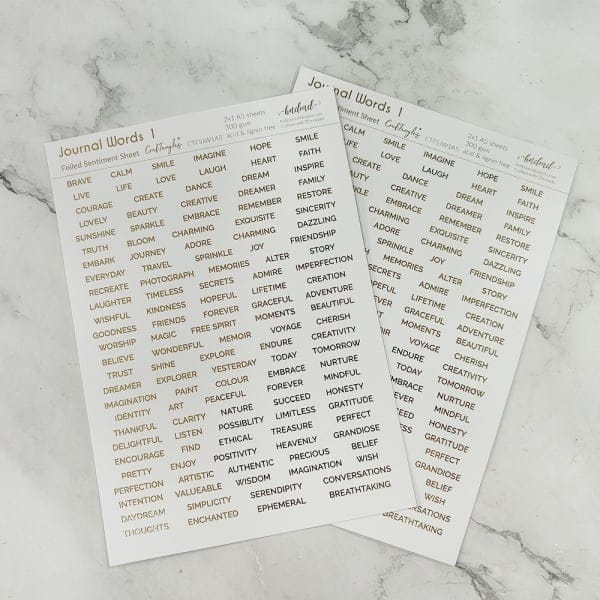 Journal Words 1
2x1 A5 sheets
300 gsm
acid & lignin free
hndmd
Foiled Sentiment Sheet CrafTangles CTFSJW1A5
BRAVE CALM SMILE IMAGINE HOPE SMILE
LIVE LIFE LOVE LAUGH HEART FAITH
COURAGE CREATE DANCE DREAM INSPIRE
LOVELY BEAUTY CREATIVE DREAMER FAMILY
SUNSHINE SPARKLE EMBRACE REMEMBER RESTORE
TRUTH BLOOM CHARMING EXQUISITE SINCERITY
EMBARK JOURNEY ADORE CHARMING DAZZLING
EVERYDAY TRAVEL SPRINKLE JOY FRIENDSHIP
RECREATE PHOTOGRAPH MEMORIES ALTER STORY
LAUGHTER TIMELESS SECRETS ADMIRE IMPERFECTION
WISHFUL KINDNESS HOPEFUL LIFETIME CREATION
GOODNESS FRIENDS FOREVER GRACEFUL ADVENTURE
WORSHIP MAGIC FREE SPIRIT MOMENTS BEAUTIFUL
BELIEVE WONDERFUL MEMOIR VOYAGE CHERISH
TRUST SHINE EXPLORE ENDURE CREATIVITY
DREAMER EXPLORER YESTERDAY TODAY TOMORROW
IMAGINATION PAINT COLOUR EMBRACE NURTURE
IDENTITY ART PEACEFUL FOREVER MINDFUL
THANKFUL CLARITY NATURE SUCCEED HONESTY
DELIGHTFUL LISTEN POSSIBLITY LIMITLESS GRATITUDE
ENCOURAGE FIND ETHICAL TREASURE PERFECT
PRETTY ENJOY POSITIVITY HEAVENLY GRANDIOSE
PERFECTION ARTISTIC AUTHENTIC PRECIOUS BELIEF
INTENTION VALUEABLE WISDOM IMAGINATION WISH
DAYDREAM SIMPLICITY SERENDIPITY CONVERSATIONS
THOUGHTS ENCHANTED EPHEMERAL BREATHTAKING
Journal Words 1
2x1 A5 sheets
300 gsm
acid & lignin free
hndmd
Sentiment Sheet CrafTangles CTFSJW1A5
CALM SMILE IMAGINE HOPE SMILE
LIFE LOVE LAUGH HEART FAITH
CREATE DANCE DREAM INSPIRE
BEAUTY CREATIVE DREAMER FAMILY
EMBRACE REMEMBER RESTORE
CHARMING EXQUISITE SINCERITY
ADORE CHARMING DAZZLING
SPRINKLE JOY FRIENDSHIP
MEMORIES ALTER STORY
SECRETS ADMIRE IMPERFECTION
HOPEFUL LIFETIME CREATION
GRACEFUL ADVENTURE
MOMENTS BEAUTIFUL
VOYAGE CHERISH
ENDURE CREATIVITY
TODAY TOMORROW
EMBRACE NURTURE
FOREVER MINDFUL
HONESTY
GRATITUDE
PERFECT
GRANDIOSE
BELIEF
WISH
CONVERSATIONS
BREATHTAKING